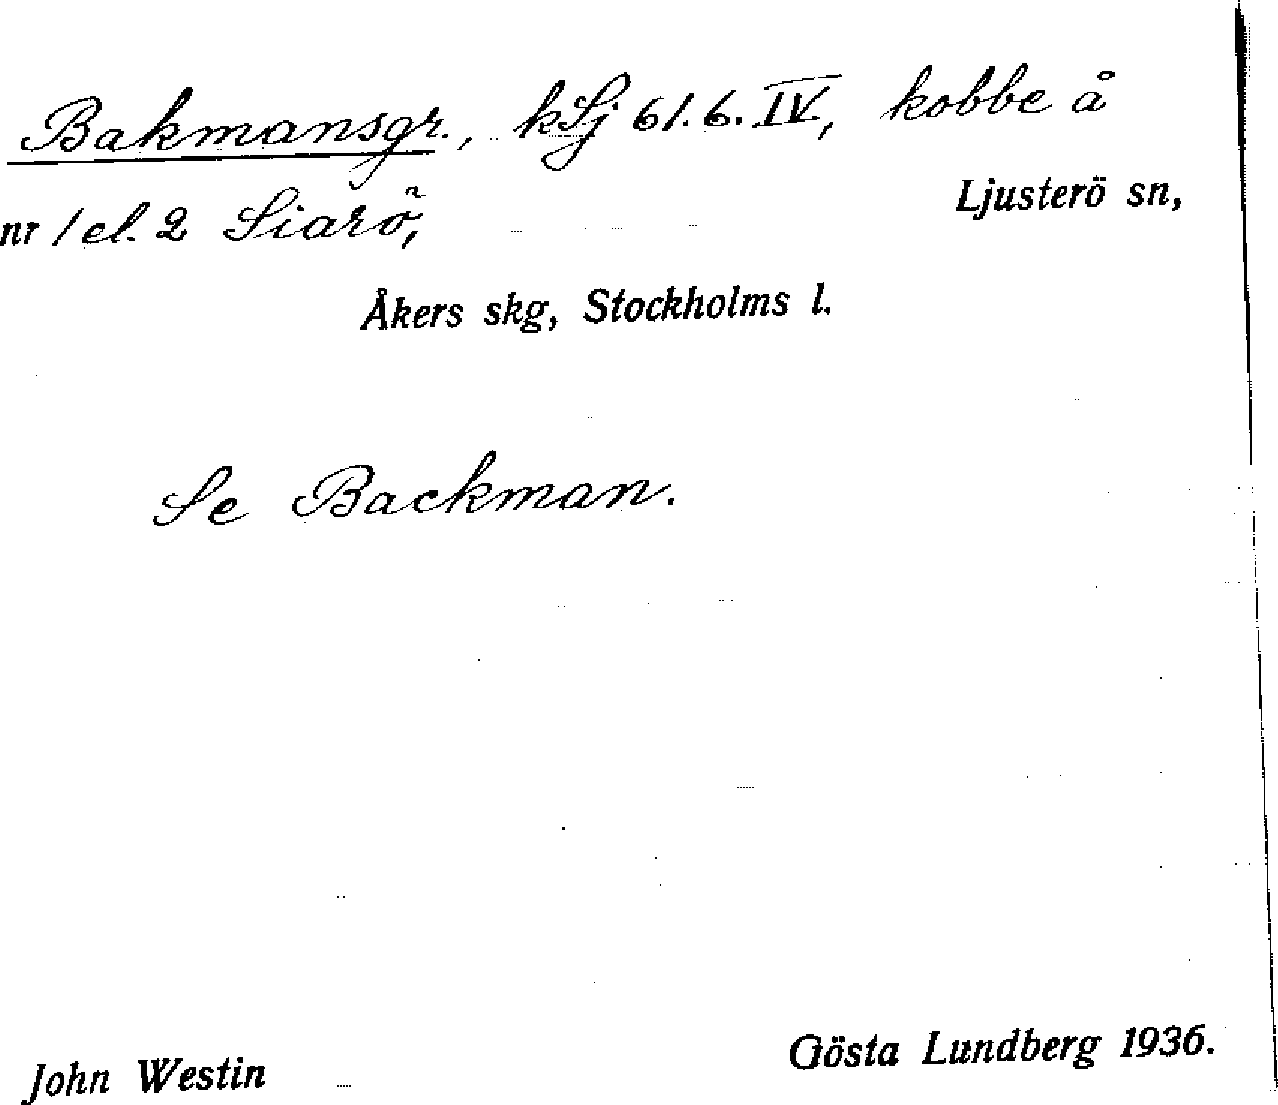 Bakmansgr., kSj 61.6.IV, kobbe å
nr 1 el. 2 Siarö, Ljusterö sn,
Åkers skg, Stockholms l.
Se Backman.
John Westin Gösta Lundberg 1936.